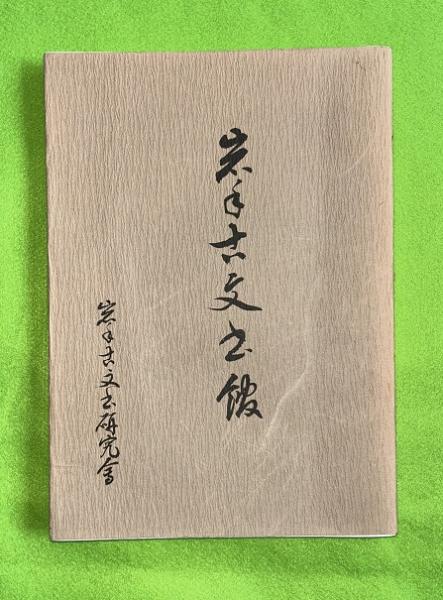 岩手古文書館
岩手古文書研究會